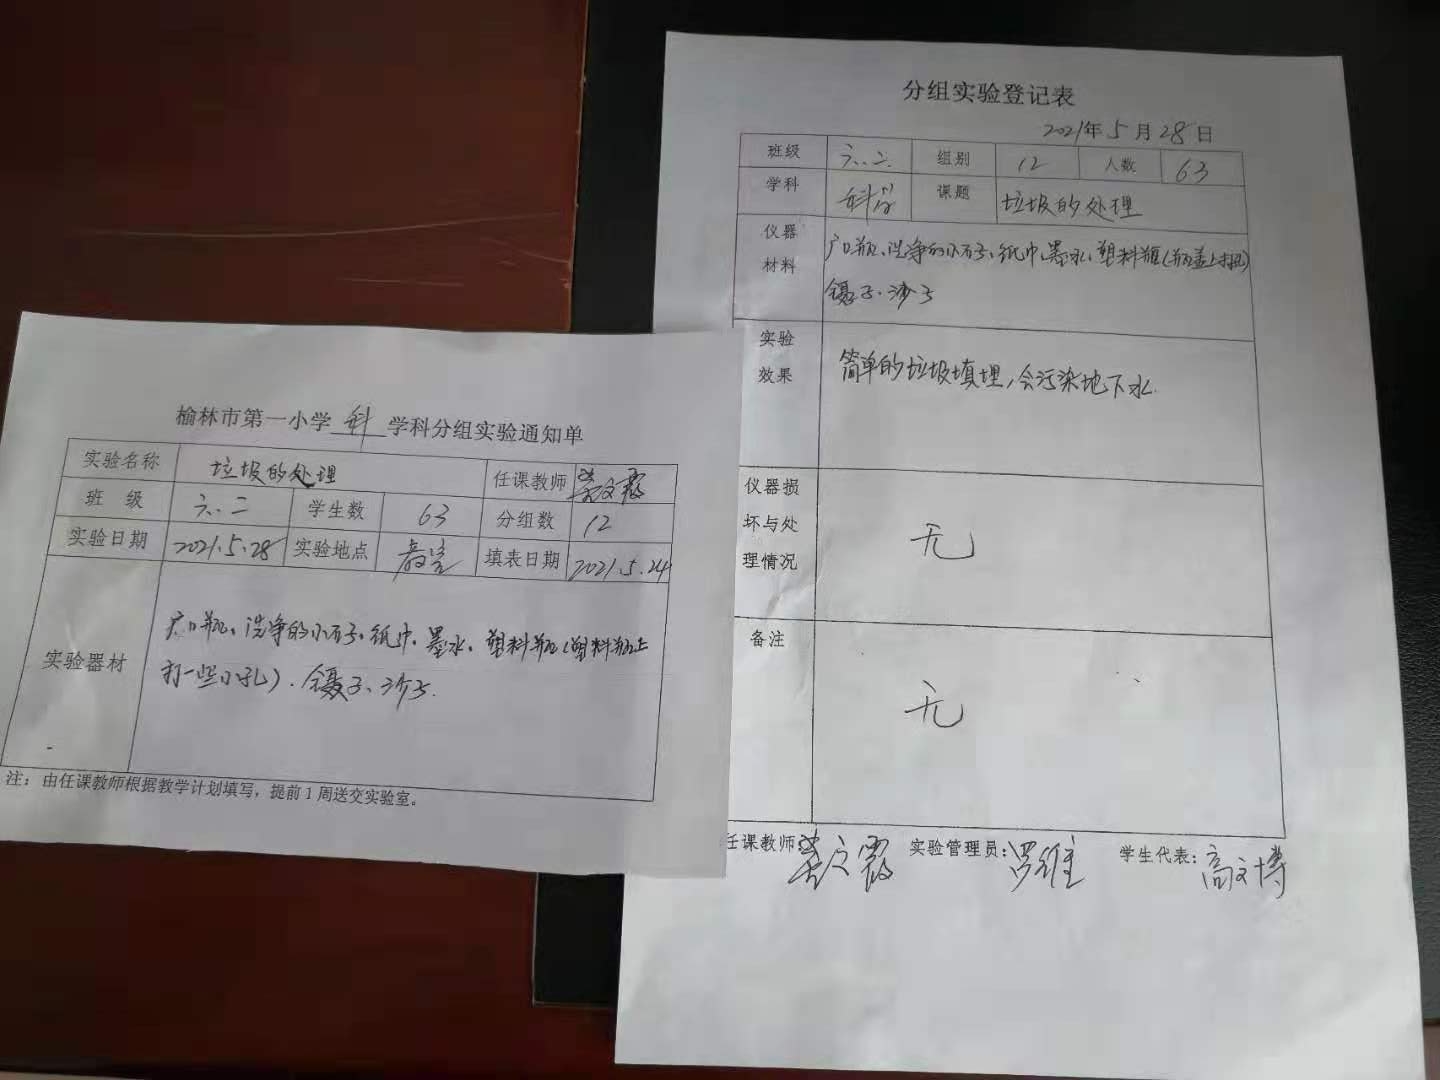 榆林市第一小学 科 学科分组实验通知单
实验名称 垃圾的处理 任课教师 文霞
班 级 六.二 学生数 63 分组数 12
实验日期 2021.5.28 实验地点 教室 填表日期 2021.5.24
实验器材
广口瓶、洗净的小石子、纸巾、墨水、塑料瓶(塑料瓶上
打一些小孔)、镊子、沙子.
注：由任课教师根据教学计划填写，提前1周送交实验室。
分组实验登记表
2021年5月28日
班级 六.二 组别 12 人数 63
学科 科学 课题 垃圾的处理
仪器
材料
广口瓶、洗净的小石子、纸巾、墨水、塑料瓶(瓶盖上打孔)
镊子、沙子
实验
效果
简单的垃圾填埋，会污染地下水.
仪器损
坏与处
理情况
无
备注
无
任课教师: 文霞 实验管理员: 罗维 学生代表: 高文博